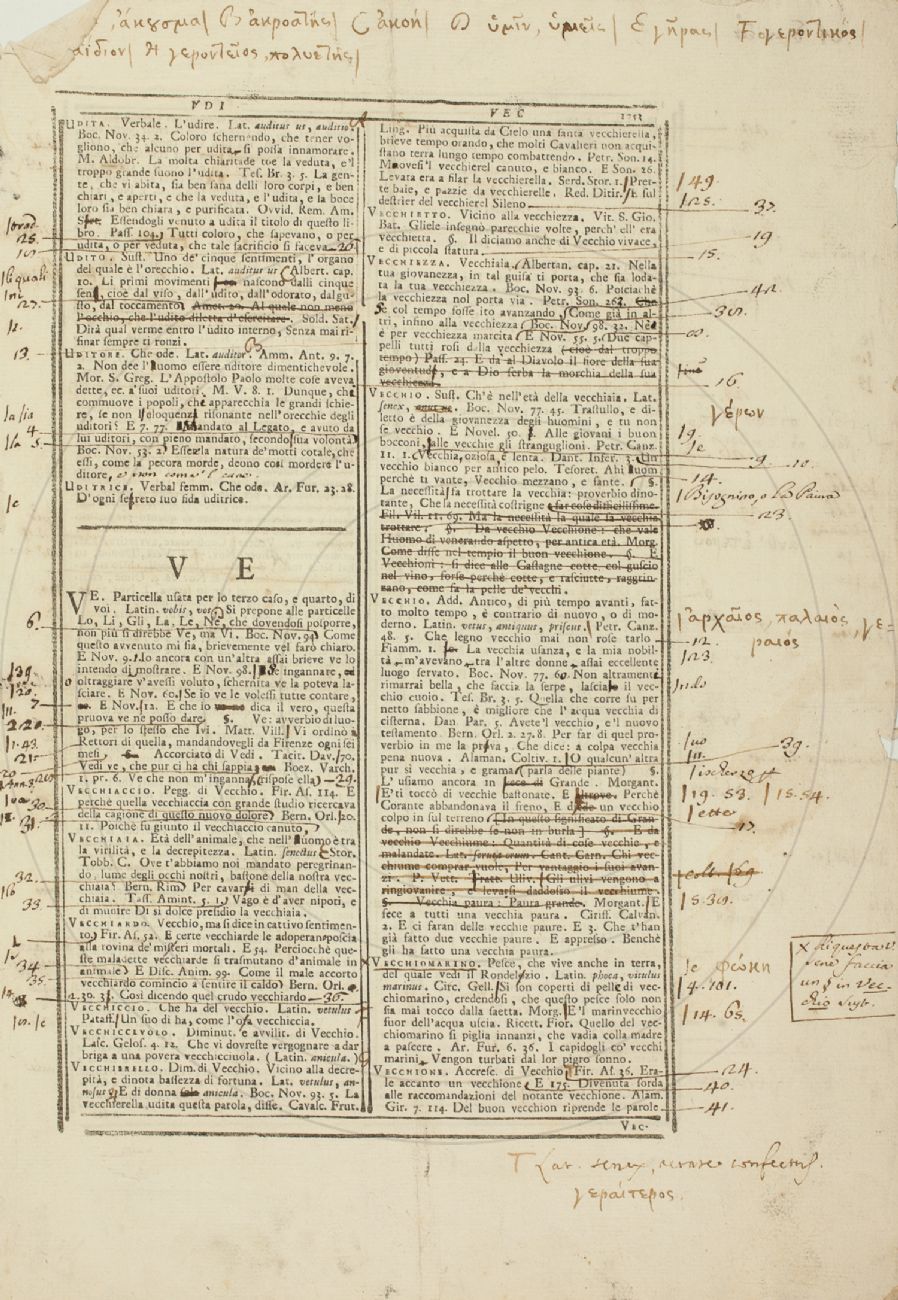 ἄκουσμα| B ἀκροατής| C ἀκοή| D ὑμῖν, ὑμεῖς| E γῆρας| F γεροντικός|
ἀΐδιον| H γεροντεῖος, πολυετής|
VDI
VEC
UDITA. Verbale. L'udire. Lat. auditus us, auditio.
Boc. Nov. 34. 2. Coloro schernendo, che tener vo-
gliono, che alcuno per udita si possa innamorare.
M. Aldobr. La molta chiaritade toe la veduta, e'l
troppo grande suono l'udita. Tes. Br. 3. 5. La gen-
te, che vi abita, sia ben sana delli loro corpi, e ben
chiari, e aperti, e che la veduta, e l'udita, e la boce
loro sia ben chiara, e purificata. Ovvid. Rem. Am.
Essendogli venuto a udita il titolo di questo li-
bro. Pass. 104. Tutti coloro, che sapevano, o per
udita, o per veduta, che tale sacrificio si faceva
UDITO. Sust. Uno de' cinque sentimenti, l'organo
del quale è l'orecchio. Lat. auditus us. Albert. cap.
10. Li primi movimenti nascono dalli cinque
sensi, cioè dal viso, dall'udito, dall'odorato, dal gu-
sto, dal toccamento. Amet. 20. Al quale non meno
l'occhio, che l'udito diletta d'esercitare. Sold. Sat.
Dirà qual verme entro l'udito interno, Senza mai ri-
finar sempre ti ronzi.
UDITORE. Che ode. Lat. auditor. Amm. Ant. 9. 7.
2. Non dee l'huomo essere uditore dimentichevole.
Mor. S. Greg. L'Appostolo Paolo molte cose aveva
dette, ec. a' suoi uditori. M. V. 8. 1. Dunque, che
commuove i popoli, che apparecchia le grandi schie-
re, se non l'eloquenza risonante nell'orecchie degli
uditori? E 7. 77. Mandato al Legato, e avuto da
lui uditori, con pieno mandato, secondo sua volontà.
Boc. Nov. 53. 2. Essere la natura de' motti cotale, che
essi, come la pecora morde, deono così mordere l'u-
ditore,
UDITRICE. Verbal femm. Che ode. Ar. Fur. 23. 28.
D'ogni segreto suo fida uditrice.
VE
VE. Particella usata per lo terzo caso, e quarto, di
voi. Latin. vobis, vos. Si prepone alle particelle
Lo, Li, Gli, La, Le, Ne, che dovendosi posporre,
non più si direbbe Ve, ma Vi. Boc. Nov. 94. Come
questo avvenuto mi sia, brievemente vel farò chiaro.
E Nov. 9. Io ancora con un'altra assai brieve ve lo
intendo di mostrare. E Nov. 98. ingannare,
oltraggiare v'avessi voluto, schernita ve la poteva la-
sciare. E Nov. 60. Se io ve le volessi tutte contare,
E Nov. 12. E che io dica il vero, questa
pruova ve ne posso dare. §. Ve: avverbio di luo-
go, per lo stesso che Ivi. Matt. Vill. Vi ordinò
Rettori di quella, mandandovegli da Firenze ogni sei
mesi. Accorciato di Vedi. Tacit. Dav. 70.
Vedi ve, che pur ci ha chi sappia Boez. Varch.
1. pr. 6. Ve che non m'inganna, (rispose ella)
VECCHIACCIO. Pegg. di Vecchio. Fir. As. 114. E
perchè quella vecchiaccia con grande studio ricercava
della cagione di questo nuovo dolore. Bern. Orl. 20.
11. Poichè fu giunto il vecchiaccio canuto,
VECCHIAIA. Età dell'animale, che nell'huomo è tra
la virilità, e la decrepitezza. Latin. senectus. Stor.
Tobb. C. Ove t'abbiamo noi mandato peregrinan-
do, lume degli occhi nostri, bastone della nostra vec-
chiaia? Bern. Rim. Per cavarsi di man della vec-
chiaia. Tass. Amint. 5. 1. Vago è d'aver nipoti, e
di morire Di sì dolce presidio la vecchiaia.
VECCHIARDO. Vecchio, ma si dice in cattivo sentimen-
to. Fir. As. 52. E certe vecchiarde le adoperan poscia
alla rovina de' miseri mortali. E 54. Perciocchè que-
ste maladette vecchiarde si trasmutano d'animale in
animale. E Disc. Anim. 99. Come il male accorto
vecchiardo comincio a sentire il caldo. Bern. Orl.
2. 30. 3. Così dicendo quel crudo vecchiardo
VECCHICCIO. Che ha del vecchio. Latin. vetulus.
Pataff. Un suo di ha, come l'ora vecchiccia.
VECCHICCIVOLO. Diminut. e avvilit. di Vecchio.
Lasc. Gelos. 4. 12. Che vi dovreste vergognare a dar
briga a una povera vecchicciuola. (Latin. anicula.)
VECCHIERELLO. Dim. di Vecchio. Vicino alla decre-
pità, e dinota bassezza di fortuna. Lat. vetulus, an-
nosus. E di donna anicula. Boc. Nov. 93. 5. La
vecchierella udita questa parola, disse. Cavalc. Frut.
Ling. Più acquista da Cielo una santa vecchierella,
brieve tempo orando, che molti Cavalieri non acqui-
stano terra lungo tempo combattendo. Petr. Son. 14.
Muovesi'l vecchierel canuto, e bianco. E Son. 26.
Levata era a filar la vecchierella. Serd. Stor. 1. Pret-
te baie, e pazzie da vecchierelle. Red. Ditir. E sul
destrier del vecchierel Sileno
VECCHIETTO. Vicino alla vecchiezza. Vit. S. Gio.
Bat. Gliele insegnò parecchie volte, perch'ell'era
vecchietta. §. Il diciamo anche di Vecchio vivace,
e di piccola statura.
VECCHIEZZA. Vecchiaia. Albertan. cap. 21. Nella
tua giovanezza, in tal guisa ti porta, che sia loda-
ta la tua vecchiezza. Boc. Nov. 93. 6. Posciachè
la vecchiezza nol porta via. Petr. Son. 262. Che
Se col tempo fosse ito avanzando, Come già in al-
tri, infino alla vecchiezza. Boc. Nov. 98. 32. Nè
è per vecchiezza marcita. E Nov. 55. 5. Due cap-
pelli tutti rosi dalla vecchiezza (cioè dal troppo
tempo) Pass. 24. E dà al Diavolo il fiore della sua
gioventude, e a Dio serba la morchia della sua
vecchiezza.
VECCHIO. Sust. Ch'è nell'età della vecchiaia. Lat.
senex, Boc. Nov. 77. 45. Trastullo, e di-
letto è della giovanezza degli huomini, e tu non
se vecchio. E Novel. 50. Alle giovani i buon
bocconi, alle vecchie gli stranguglioni. Petr. Canz.
11. 1. Vecchia, oziosa, e lenta. Dant. Infer. 3. Un
vecchio bianco per antico pelo. Tesoret. Ahi huom
perchè ti vante, Vecchio mezzano, e fante. §.
La necessità fa trottare la vecchia: proverbio dino-
tante, Che la necessità costrigne a far cose difficilissime.
Fil. Vil. 11. 69. Ma la necessità la quale fa vecchia
trottare. §. Da vecchio Vecchione: che vale
Huomo di venerando aspetto, per antica età. Morg.
Come disse nel tempio il buon vecchione. §. E
Vecchioni: si dice alle Castagne cotte col guscio
nel vino, forse perchè cotte, e rasciutte, raggrin-
zano, come fa la pelle de' vecchi.
VECCHIO. Add. Antico, di più tempo avanti, fat-
to molto tempo, è contrario di nuovo, o di mo-
derno. Latin. vetus, antiquus, priscus. Petr. Canz.
48. 5. Che legno vecchio mai non rose tarlo
Fiamm. 1. La vecchia usanza, e la mia nobil-
tà m'avevano tra l'altre donne assai eccellente
luogo servato. Boc. Nov. 77. 60. Non altramente
rimarrai bella, che faccia la serpe, lasciato il vec-
chio cuoio. Tes. Br. 3. 5. Quella che corre su per
netto sabbione, è migliore che l'acqua vecchia di
cisterna. Dan. Par. 5. Avete'l vecchio, e'l nuovo
testamento. Bern. Orl. 2. 27. 8. Per far di quel pro-
verbio in me la prova, Che dice: a colpa vecchia
pena nuova. Alaman. Coltiv. 1. O qualcun'altra
pur si vecchia, e grama (parla delle piante) §.
L'usiamo ancora in Grande. Morgant.
E'ti toccò di vecchie bastonate. E Perchè
Corante abbandonava il freno, E un vecchio
colpo in sul terreno. (In questo significato di Gran-
de, non si direbbe se non in burla) §. E da
vecchio Vecchiume: Quantità di cose vecchie, e
malandate. Lat. scruta orum. Cant. Carn. Chi vec-
chiume comprar vuole, Per vantaggio i suoi avan-
zi. P. Vett. Tratt. Uliv. Gli ulivi vengono a
ringiovanire, e levarsi daddosso il vecchiume.
§. Vecchia paura: Paura grande. Morgant. E
fece a tutti una vecchia paura. Ciriff. Calvan.
2. E ci faran delle vecchie paure. E 3. Che t'han
già fatto due vecchie paure. E appresso. Benchè
gli ha fatto una vecchia paura.
VECCHIOMARINO. Pesce, che vive anche in terra,
del quale vedi il Rondelezio. Latin. phoca, vitulus
marinus. Circ. Gell. Si son coperti di pelle di vec-
chiomarino, credendosi, che questo pesce solo non
sia mai tocco dalla saetta. Morg. E'l marinvecchio
fuor dell'acqua uscia. Ricett. Fior. Quello del vec-
chiomarino si piglia innanzi, che vadia colla madre
a pascere. Ar. Fur. 6. 36. I capidogli co' vecchi
marini Vengon turbati dal lor pigro sonno.
VECCHIONE. Accresc. di Vecchio. Fir. As. 36. Era-
le accanto un vecchione. E 175. Divenuta sorda
alle raccomandazioni del notante vecchione. Alam.
Gir. 7. 114. Del buon vecchion riprende le parole
VEC-
149.
37.
19
15.
16.
γέρων
9
14.
Bisognino, o La Paura
23.
ἀρχαῖος, παλαιός γε=
ραιός
12.
123
39.
19. 53. 15. 54.
φώκη
4. 101.
14. 65.
X di questo av.
sene faccia
un § in Vec-
chio sust.
24.
40.
41.
25.
13.
6.
7
30.
31.
32.
33.
34
35.
36.
T Lat. senex, aetate confectus.
γεραίτερος.